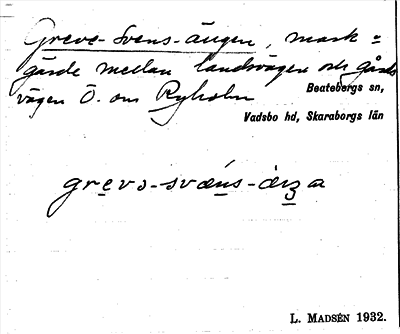 Greve-Svens-ängen, mark o
gärde mellan landsvägen och gårds
vägen Ö. om Ryholm
Beatebergs sn,
Vadsbo hd, Skaraborgs län
L. MADSÉN 1932.